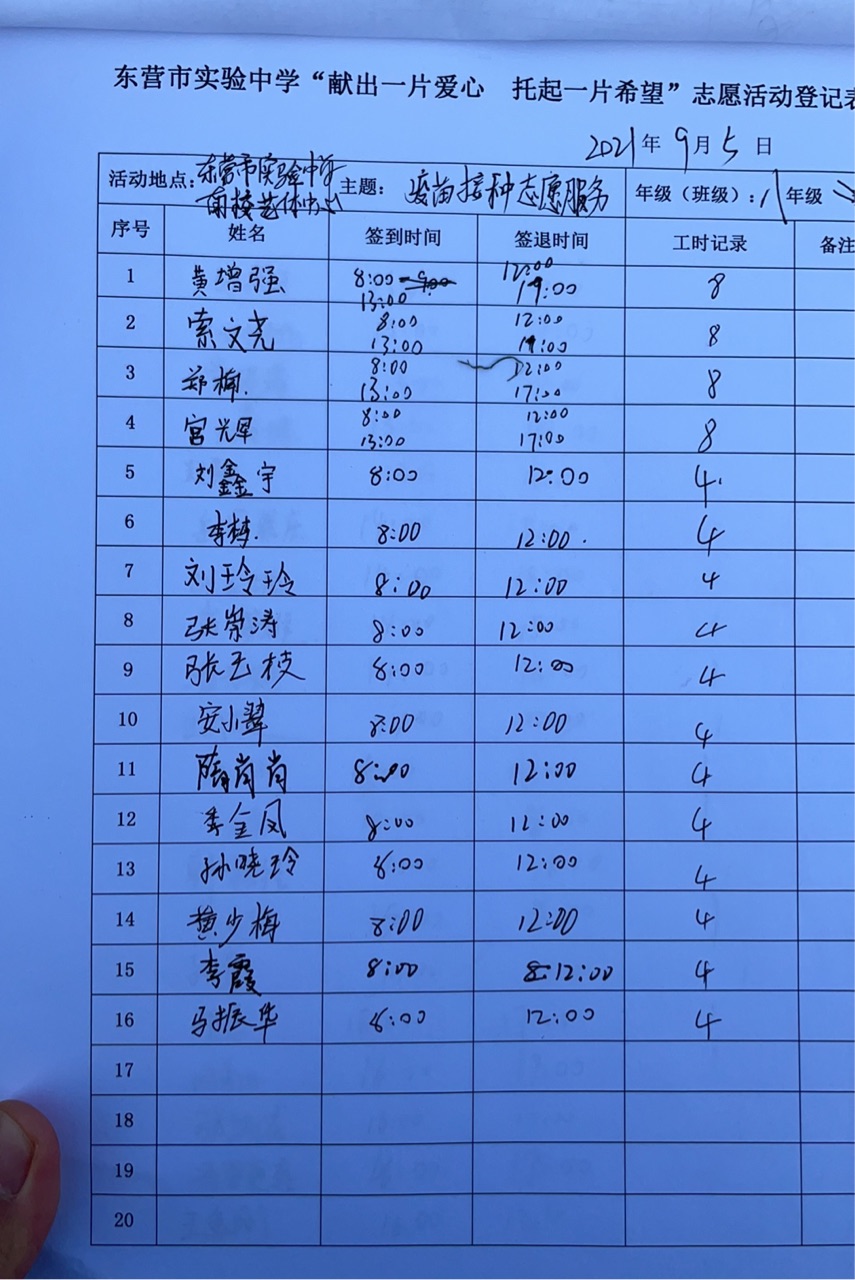 东营市实验中学“献出一片爱心 托起一片希望”志愿活动登记表
2021年9月5日
活动地点:东营市实验中学南校艺体中心 主题:疫苗接种志愿服务 年级(班级):八年级
序号 姓名 签到时间 签退时间 工时记录 备注
1 黄增强 8:00 13:00 12:00 17:00 8
2 索文尧 8:00 13:00 12:00 17:00 8
3 郑楠 8:00 13:00 12:00 17:00 8
4 宫光军 8:00 13:00 12:00 17:00 8
5 刘鑫宇 8:00 12:00 4
6 李梅 8:00 12:00 4
7 刘玲玲 8:00 12:00 4
8 张崇涛 8:00 12:00 4
9 张玉枝 8:00 12:00 4
10 安小翠 8:00 12:00 4
11 隋肖肖 8:00 12:00 4
12 季金凤 8:00 12:00 4
13 孙晓玲 8:00 12:00 4
14 黄少梅 8:00 12:00 4
15 李霞 8:00 12:00 4
16 马振华 8:00 12:00 4
17
18
19
20